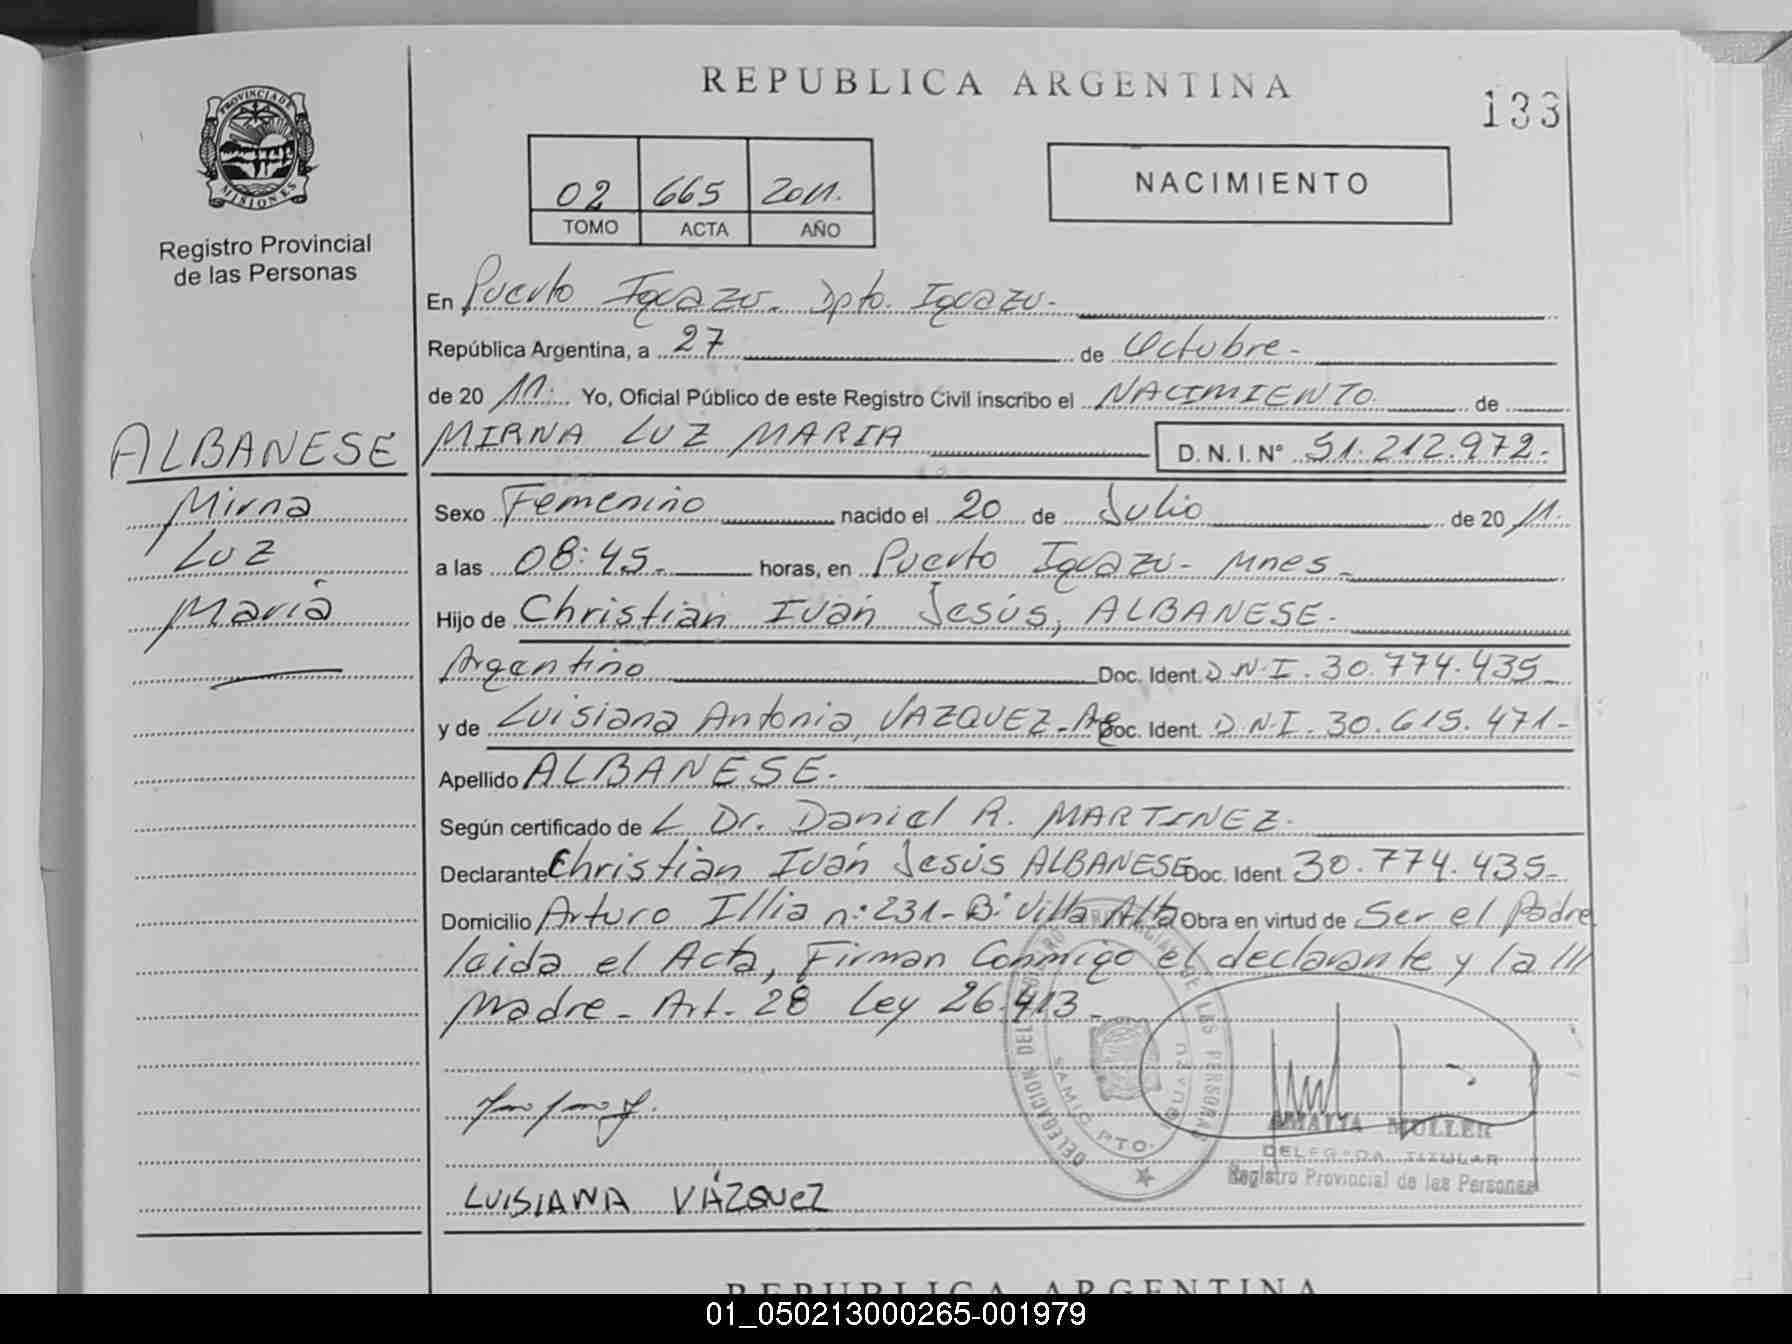 REPUBLICA ARGENTINA
133
PROVINCIA DE
MISIONES
Registro Provincial
de las Personas
02 665 2011.
TOMO ACTA AÑO
NACIMIENTO
En Puerto Iguazu - Dpto. Iguazu-
República Argentina, a 27 de Octubre-
de 20 11. Yo, Oficial Público de este Registro Civil inscribo el NACIMIENTO de
ALBANESE
Mirna
Luz
María
MIRNA LUZ MARIA D. N. I. Nº 51.212.972-
Sexo Femenino nacido el 20 de Julio de 20 11.
a las 08:45- horas, en Puerto Iguazu- Mnes-
Hijo de Christian Iván Jesús, ALBANESE-
Argentino Doc. Ident. D.N.I. 30.774.435-
y de Luisiana Antonia, VAZQUEZ- Doc. Ident. D.N.I. 30.615.471-
Apellido ALBANESE-
Según certificado de L Dr. Daniel R. MARTINEZ-
Declarante Christian Iván Jesús ALBANESE Doc. Ident 30.774.435-
Domicilio Arturo Illia nº 231- Bº Villa Alta Obra en virtud de Ser el padre
leida el Acta, Firman Conmigo el declarante y la ///
Madre- Art. 28 Ley 26.413-
LUISIANA VÁZQUEZ
AMALIA MULLER
DELEGADA TITULAR
Registro Provincial de las Personas
REPUBLICA ARGENTINA
01_050213000265-001979